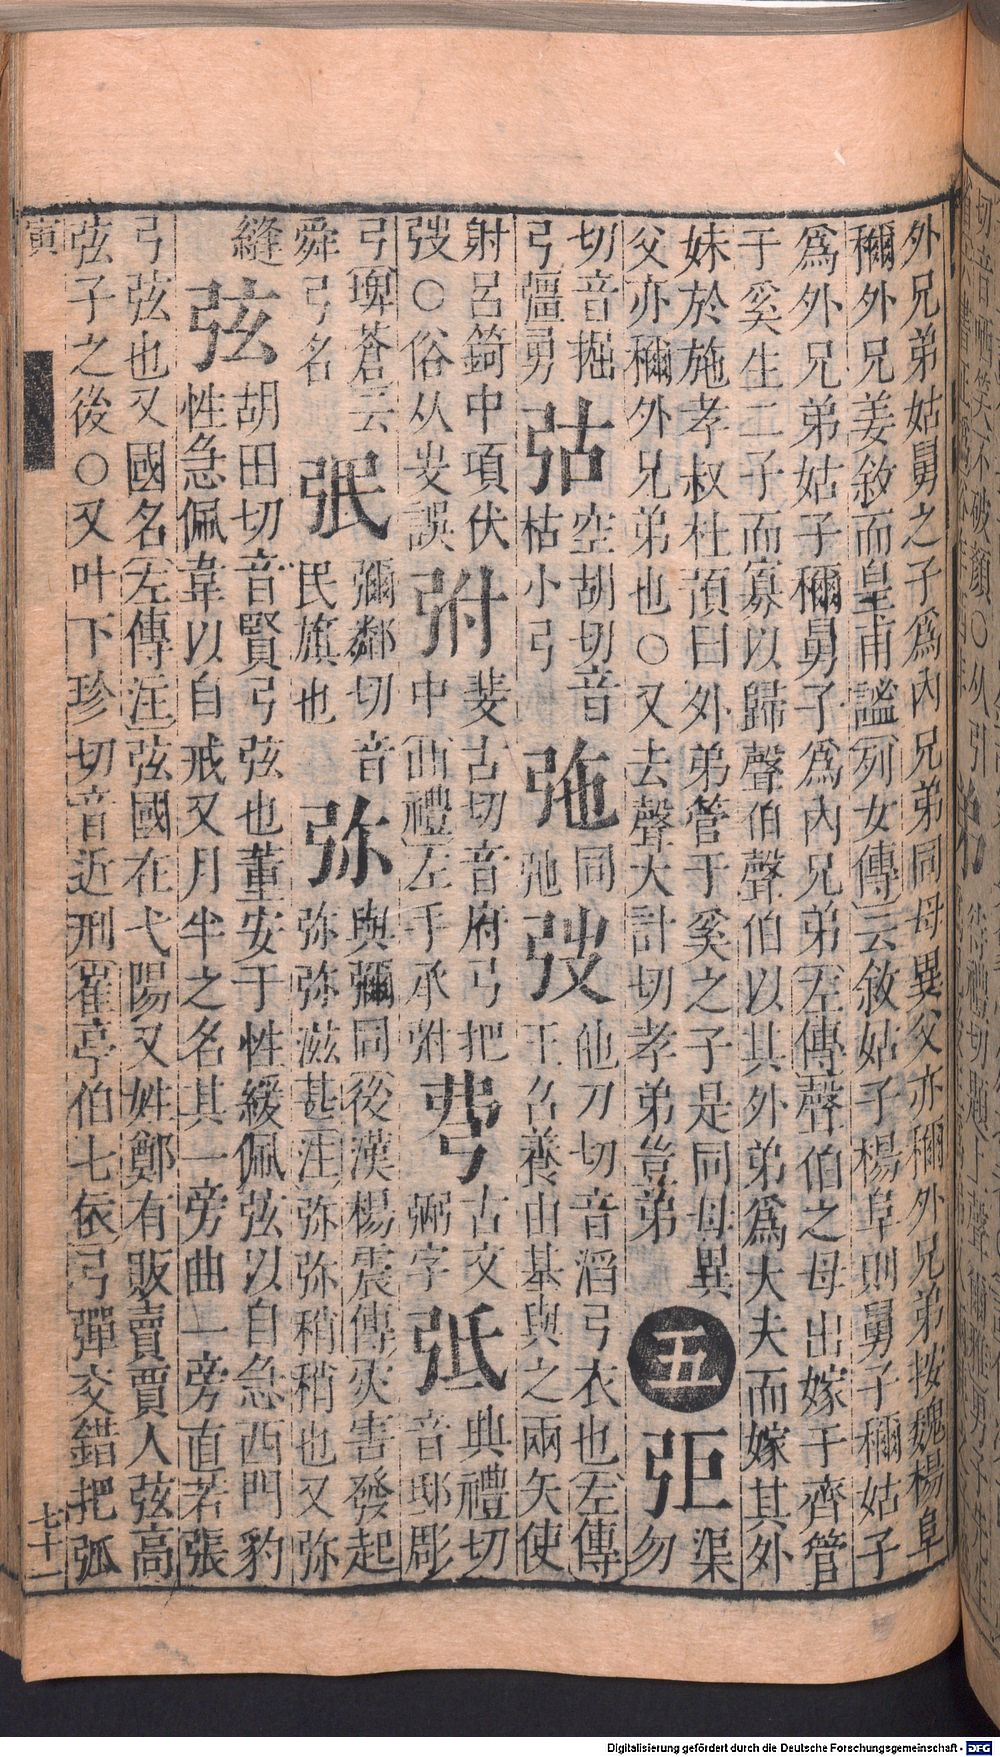 外兄弟姑舅之子爲內兄弟同母異父亦稱外兄弟按魏楊阜
稱外兄姜敘而皇甫謐列女傳云敘姑子楊阜則舅子稱姑子
爲外兄弟姑子稱舅子爲內兄弟左傳聲伯之母出嫁于齊管
于奚生二子而寡以歸聲伯聲伯以其外弟爲大夫而嫁其外
妹於施孝叔杜預曰外弟管于奚之子是同母異
父亦稱外兄弟也○又去聲大計切孝弟豈弟
五
渠
勿
切音掘
弓彊勇
空胡切音
枯小弓
㢮
同
弛
弢
他刀切音滔弓衣也左傳
王召養由基與之兩矢使
射呂錡中項伏
弢○俗从犮誤
弣
斐古切音府弓把
中曲禮左手承弣
古文
弼字
弤
典禮切
音邸彫
弓埤蒼云
舜弓名
彌鄰切音
民旗也
弥
與彌同後漢楊震傳災害發起
弥弥滋甚注弥弥稍稍也又弥
縫
弦
胡田切音賢弓弦也董安于性緩佩弦以自急西門豹
性急佩韋以自戒又月半之名其一旁曲一旁直若張
弓弦也又國名左傳注弦國在弋陽又姓鄭有販賣賈人弦高
弦子之後○又叶下珍切音近刑崔亭伯七依弓彈交錯把弧
寅
七十一
Digitalisierung gefördert durch die Deutsche Forschungsgemeinschaft - DFG